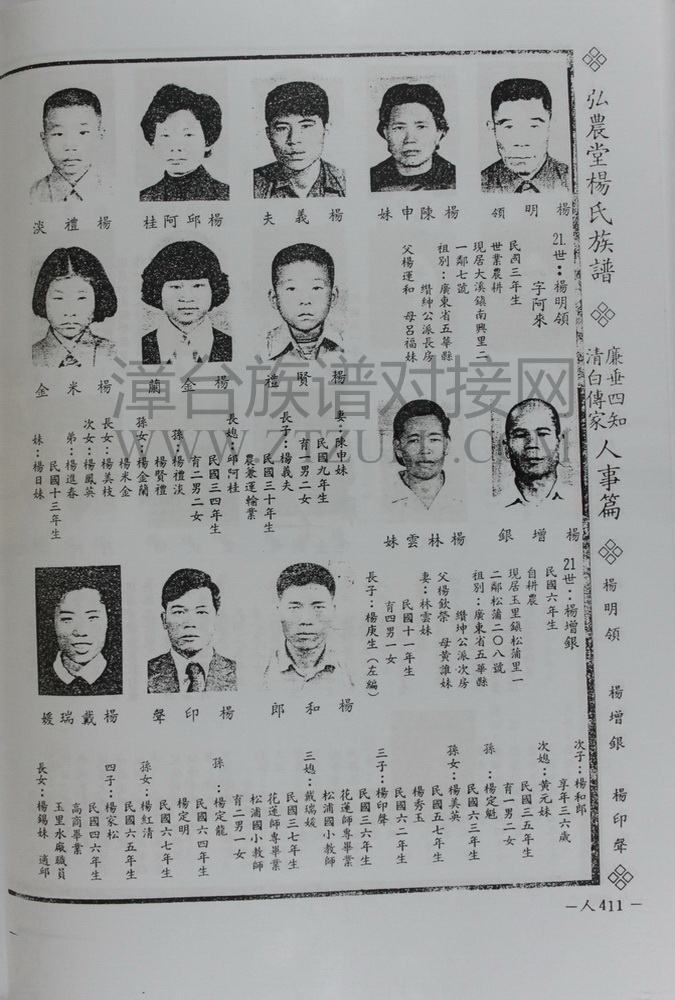 弘農堂楊氏族譜
廉垂四知
清白傳家
人事篇
楊明領
楊增銀
楊印聲
—人411—
楊明領
楊陳申妹
楊義夫
楊邱阿桂
楊禮淡
21世：楊明領
字阿來
民國三年生
世業農耕
現居大溪鎮南興里二
一鄰七號
祖別：廣東省五華縣
纘紳公派長房
父楊運和 母呂福妹
楊賢禮
楊金蘭
楊米金
妻：陳申妹
民國九年生
育一男二女
長子：楊義夫
民國三十年生
農兼運輸業
長媳：邱阿桂
民國三四年生
育二男二女
孫：楊禮淡
楊賢禮
孫女：楊金蘭
楊米金
長女：楊美枝
次女：楊鳳英
弟：楊進春
民國十三年生
妹：楊日妹
楊增銀
楊林雲妹
21世：楊增銀
民國六年生
自耕農
現居玉里鎮松蒲里一
二鄰松蒲二〇八號
祖別：廣東省五華縣
纘紳公派次房
父楊欽榮 母黃誰妹
妻：林雲妹
民國十一年生
育四男一女
長子：楊庚生（左編）
楊和郎
楊印聲
楊戴瑞媛
次子：楊和郎
享年三六歲
次媳：黃元妹
民國三五年生
育一男二女
孫：楊定魁
民國六三年生
孫女：楊美英
民國五七年生
楊秀玉
民國六二年生
三子：楊印聲
民國三六年生
花蓮師專畢業
松浦國小教師
三媳：戴瑞媛
民國三七年生
花蓮師專畢業
松浦國小教師
育二男一女
孫：楊定龍
民國六四年生
楊定明
民國六七年生
孫女：楊紅清
民國六五年生
四子：楊家松
民國四六年生
高商畢業
玉里水廠職員
長女：楊錫妹 適邱
漳台族谱对接网
WWW.ZTZUPU.COM